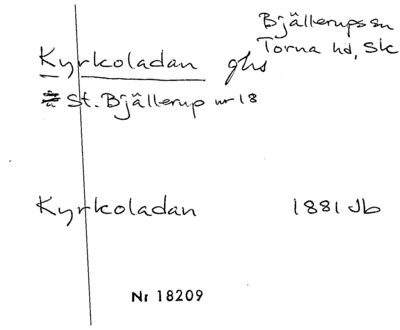 Bjällerups sn
Torna hd, Sk
Kyrkoladan ghs
St. Bjällerup nr 18
Kyrkoladan 1881 Jb
Nr 18209